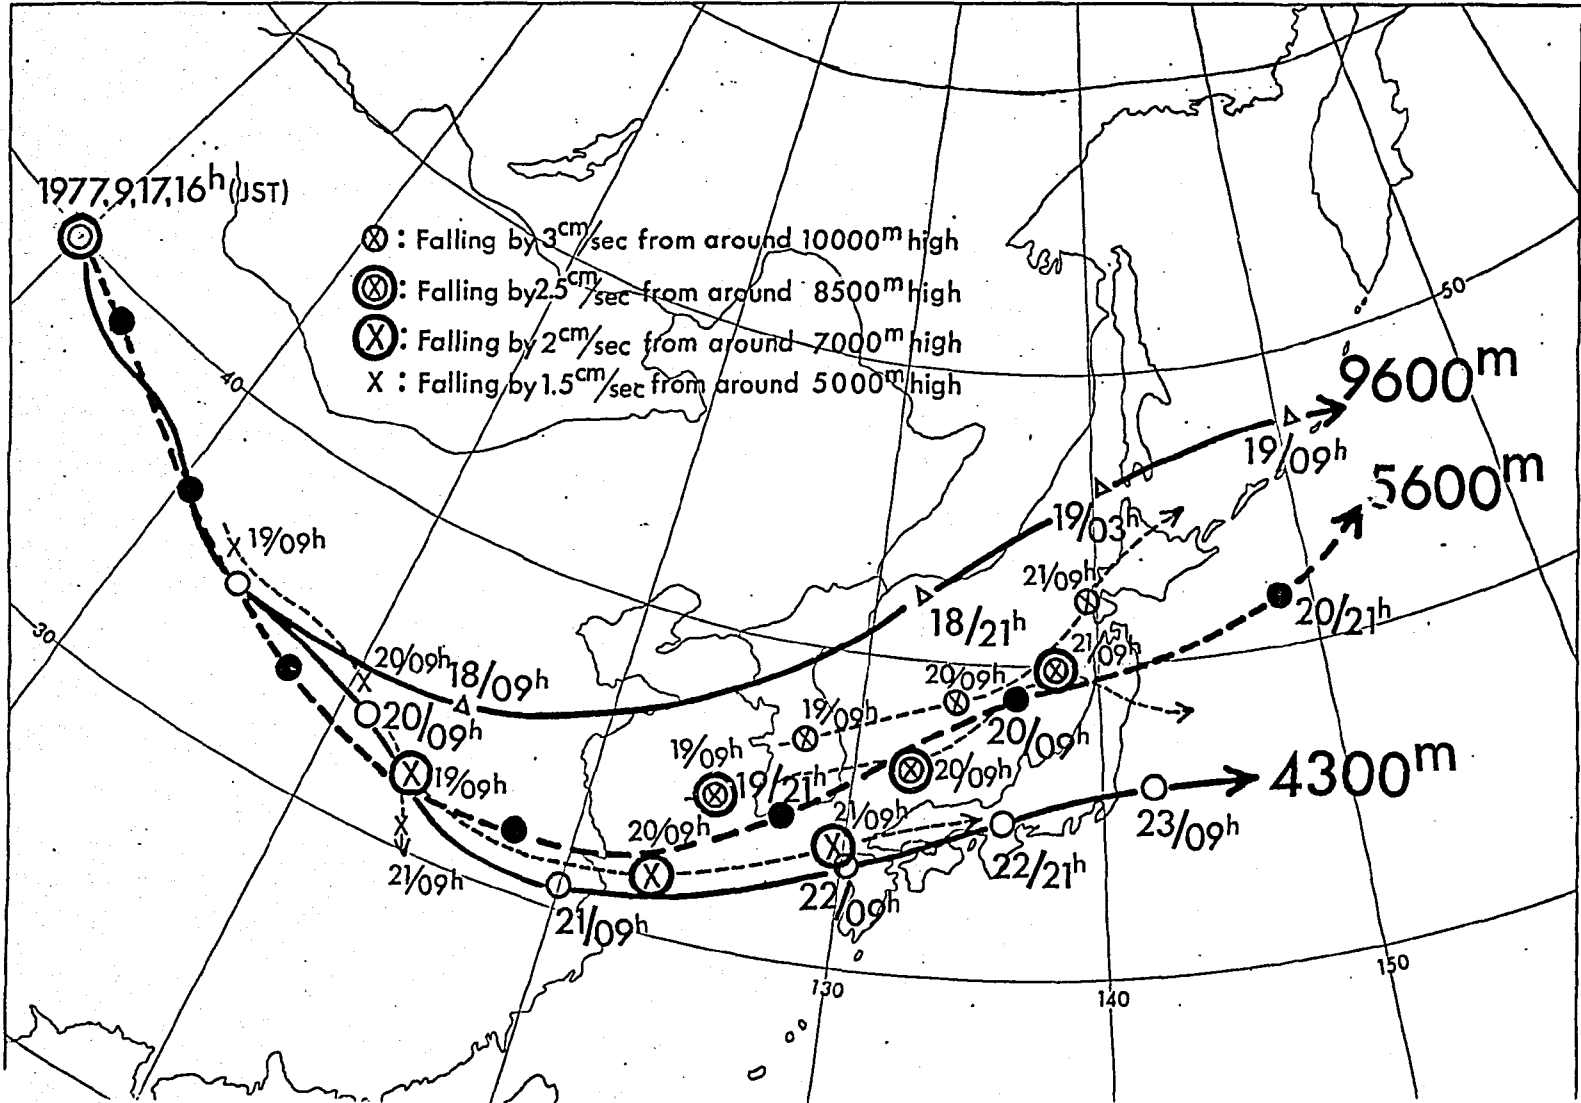 1977,9,17,16h (JST)
⊗ : Falling by 3cm/sec from around 10000m high
: Falling by 2.5cm/sec from around 8500m high
: Falling by 2cm/sec from around 7000m high
X : Falling by 1.5cm/sec from around 5000m high
50
9600m
40
19/09h
5600m
19/03h
19/09h
21/09h
20/21h
30
18/21h
21/09h
20/09h
18/09h
20/09h
19/09h
20/09h
20/09h
19/09h
19/21h
20/09h
19/09h
4300m
20/09h
21/09h
23/09h
21/09h
22/21h
22/09h
21/09h
150
130
140